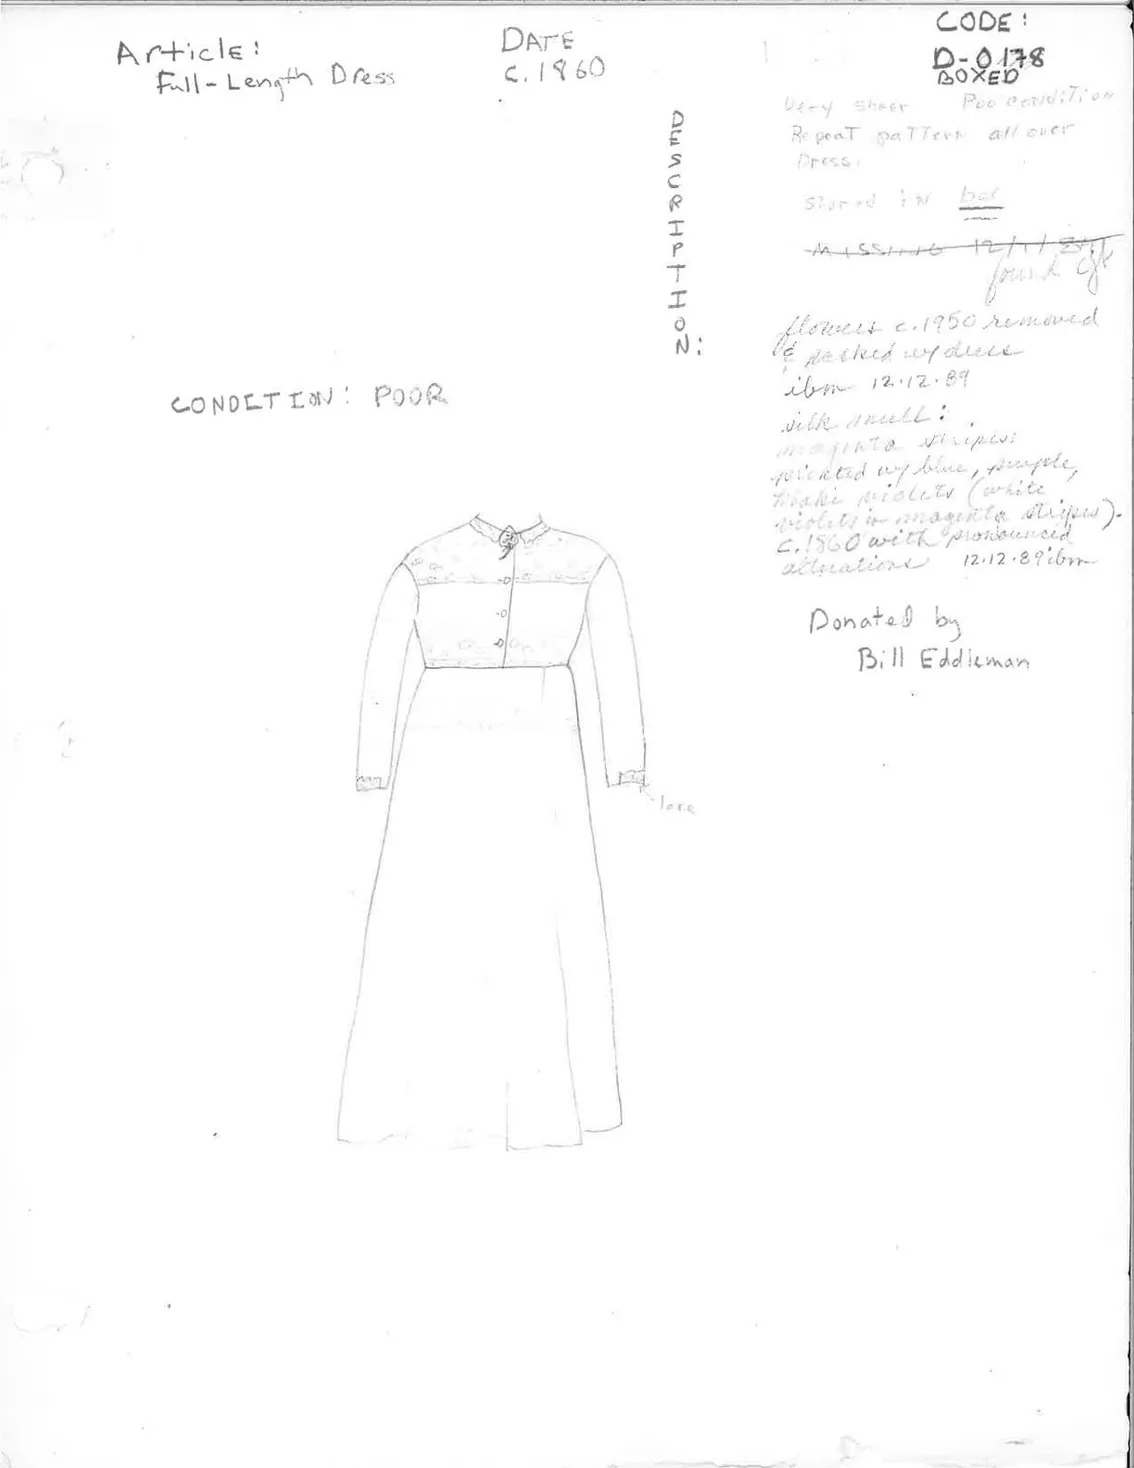 Article:
Full-Length Dress
DATE
c. 1860
CODE:
D-0178
BOXED
DESCRIPTION:
Very sheer Poo condiTion
RepeaT paTTern all over
Dress.
Stored iN box
MISSING 12/1/
found
flowers c. 1950 removed
& packed w/ dress
ibm 12.12.89
silk mull:
magenta stripes:
printed w/ blue, purple,
khaki violets (white
violets in magenta stripes).
c. 1860 with pronounced
alterations 12.12.89 ibm
Donated by
Bill Eddleman
CONDITION: POOR
lace